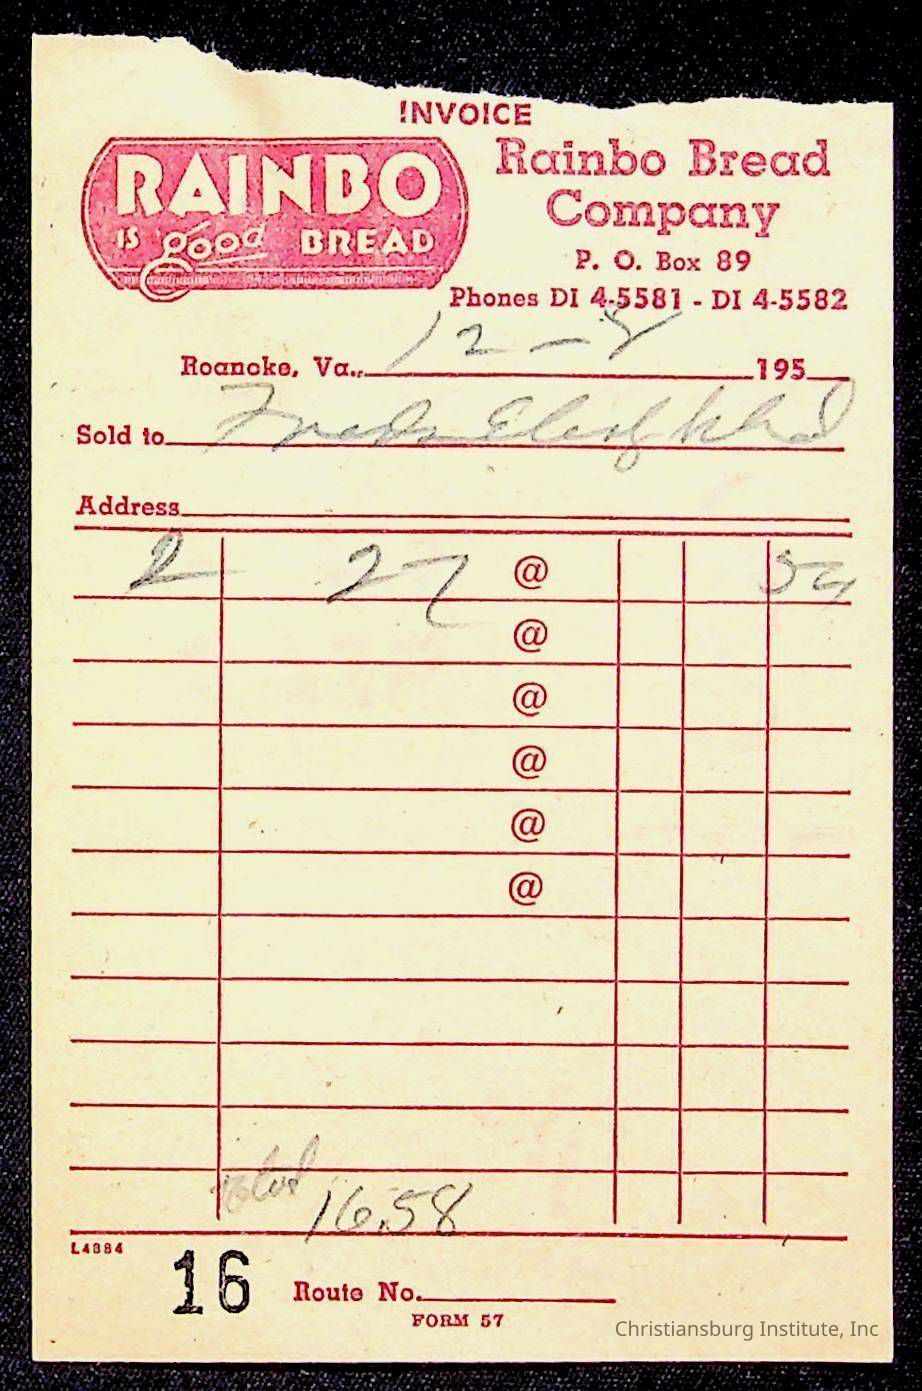 INVOICE
RAINBO
IS good BREAD
Rainbo Bread
Company
P. O. Box 89
Phones DI 4-5581 - DI 4-5582
Roanoke, Va., 12-8 195
Sold to
Address
2 27 @ 54
@
@
@
@
@
16.58
L4884
16 Route No.
FORM 57
Christiansburg Institute, Inc